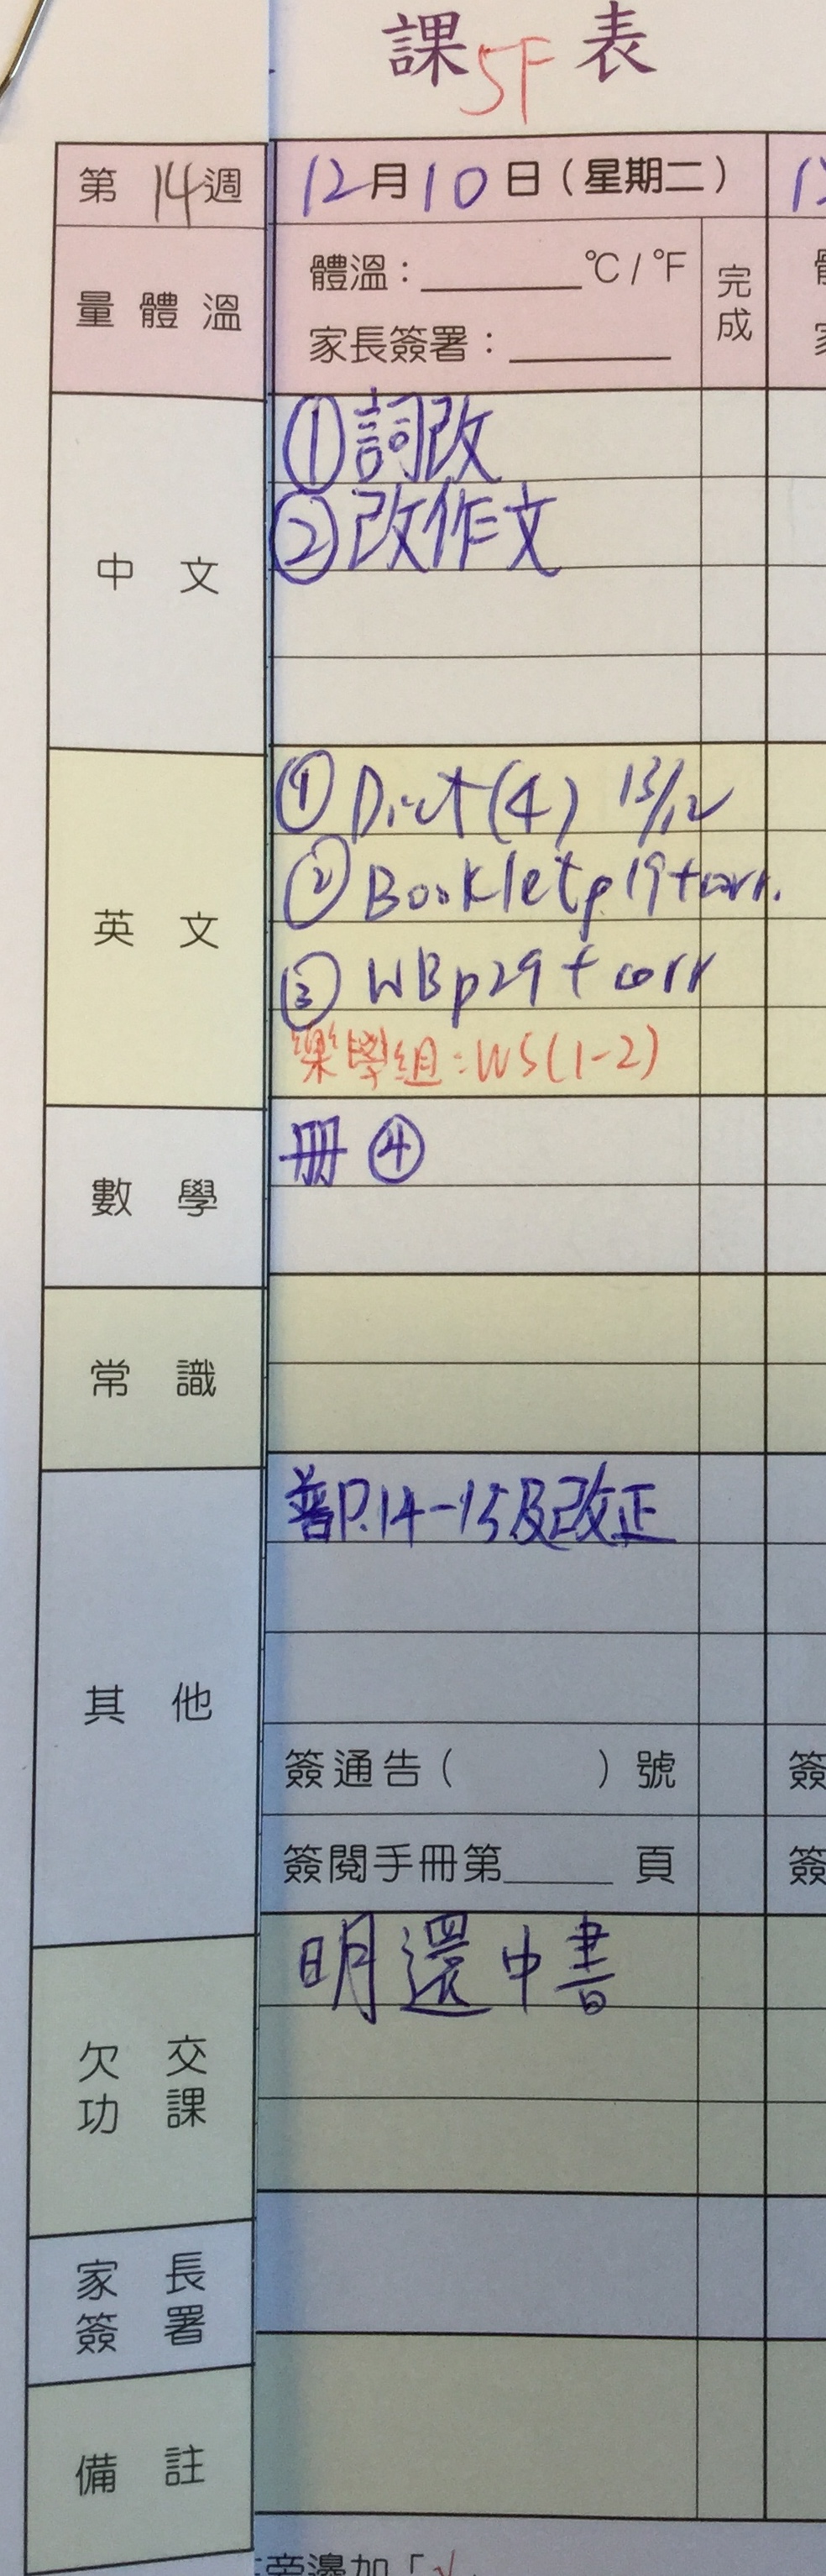 課5F表
第14週
12月10日(星期二)
量體溫
體溫:______°C/°F
家長簽署:______
完成
中文
①詞改
②改作文
英文
① Dict(4) 13/12
② Booklet p.19+corr.
③ WB p29 + corr
樂學組:WS(1-2)
數學
冊④
常識
其他
普P.14-15及改正
簽通告( )號
簽閱手冊第____頁
簽
簽
欠交功課
明還中書
家長簽署
備註
旁邊加「√